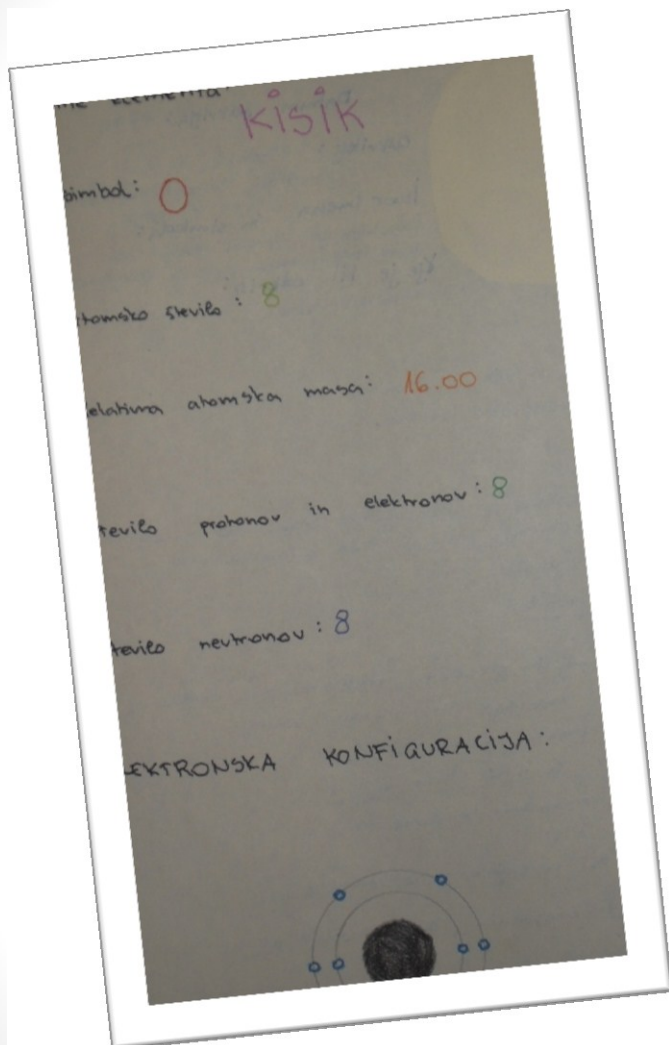 elementa:
KISIK
simbol: O
atomsko število: 8
relativna atomska masa: 16.00
število protonov in elektronov: 8
število nevtronov: 8
ELEKTRONSKA KONFIGURACIJA: